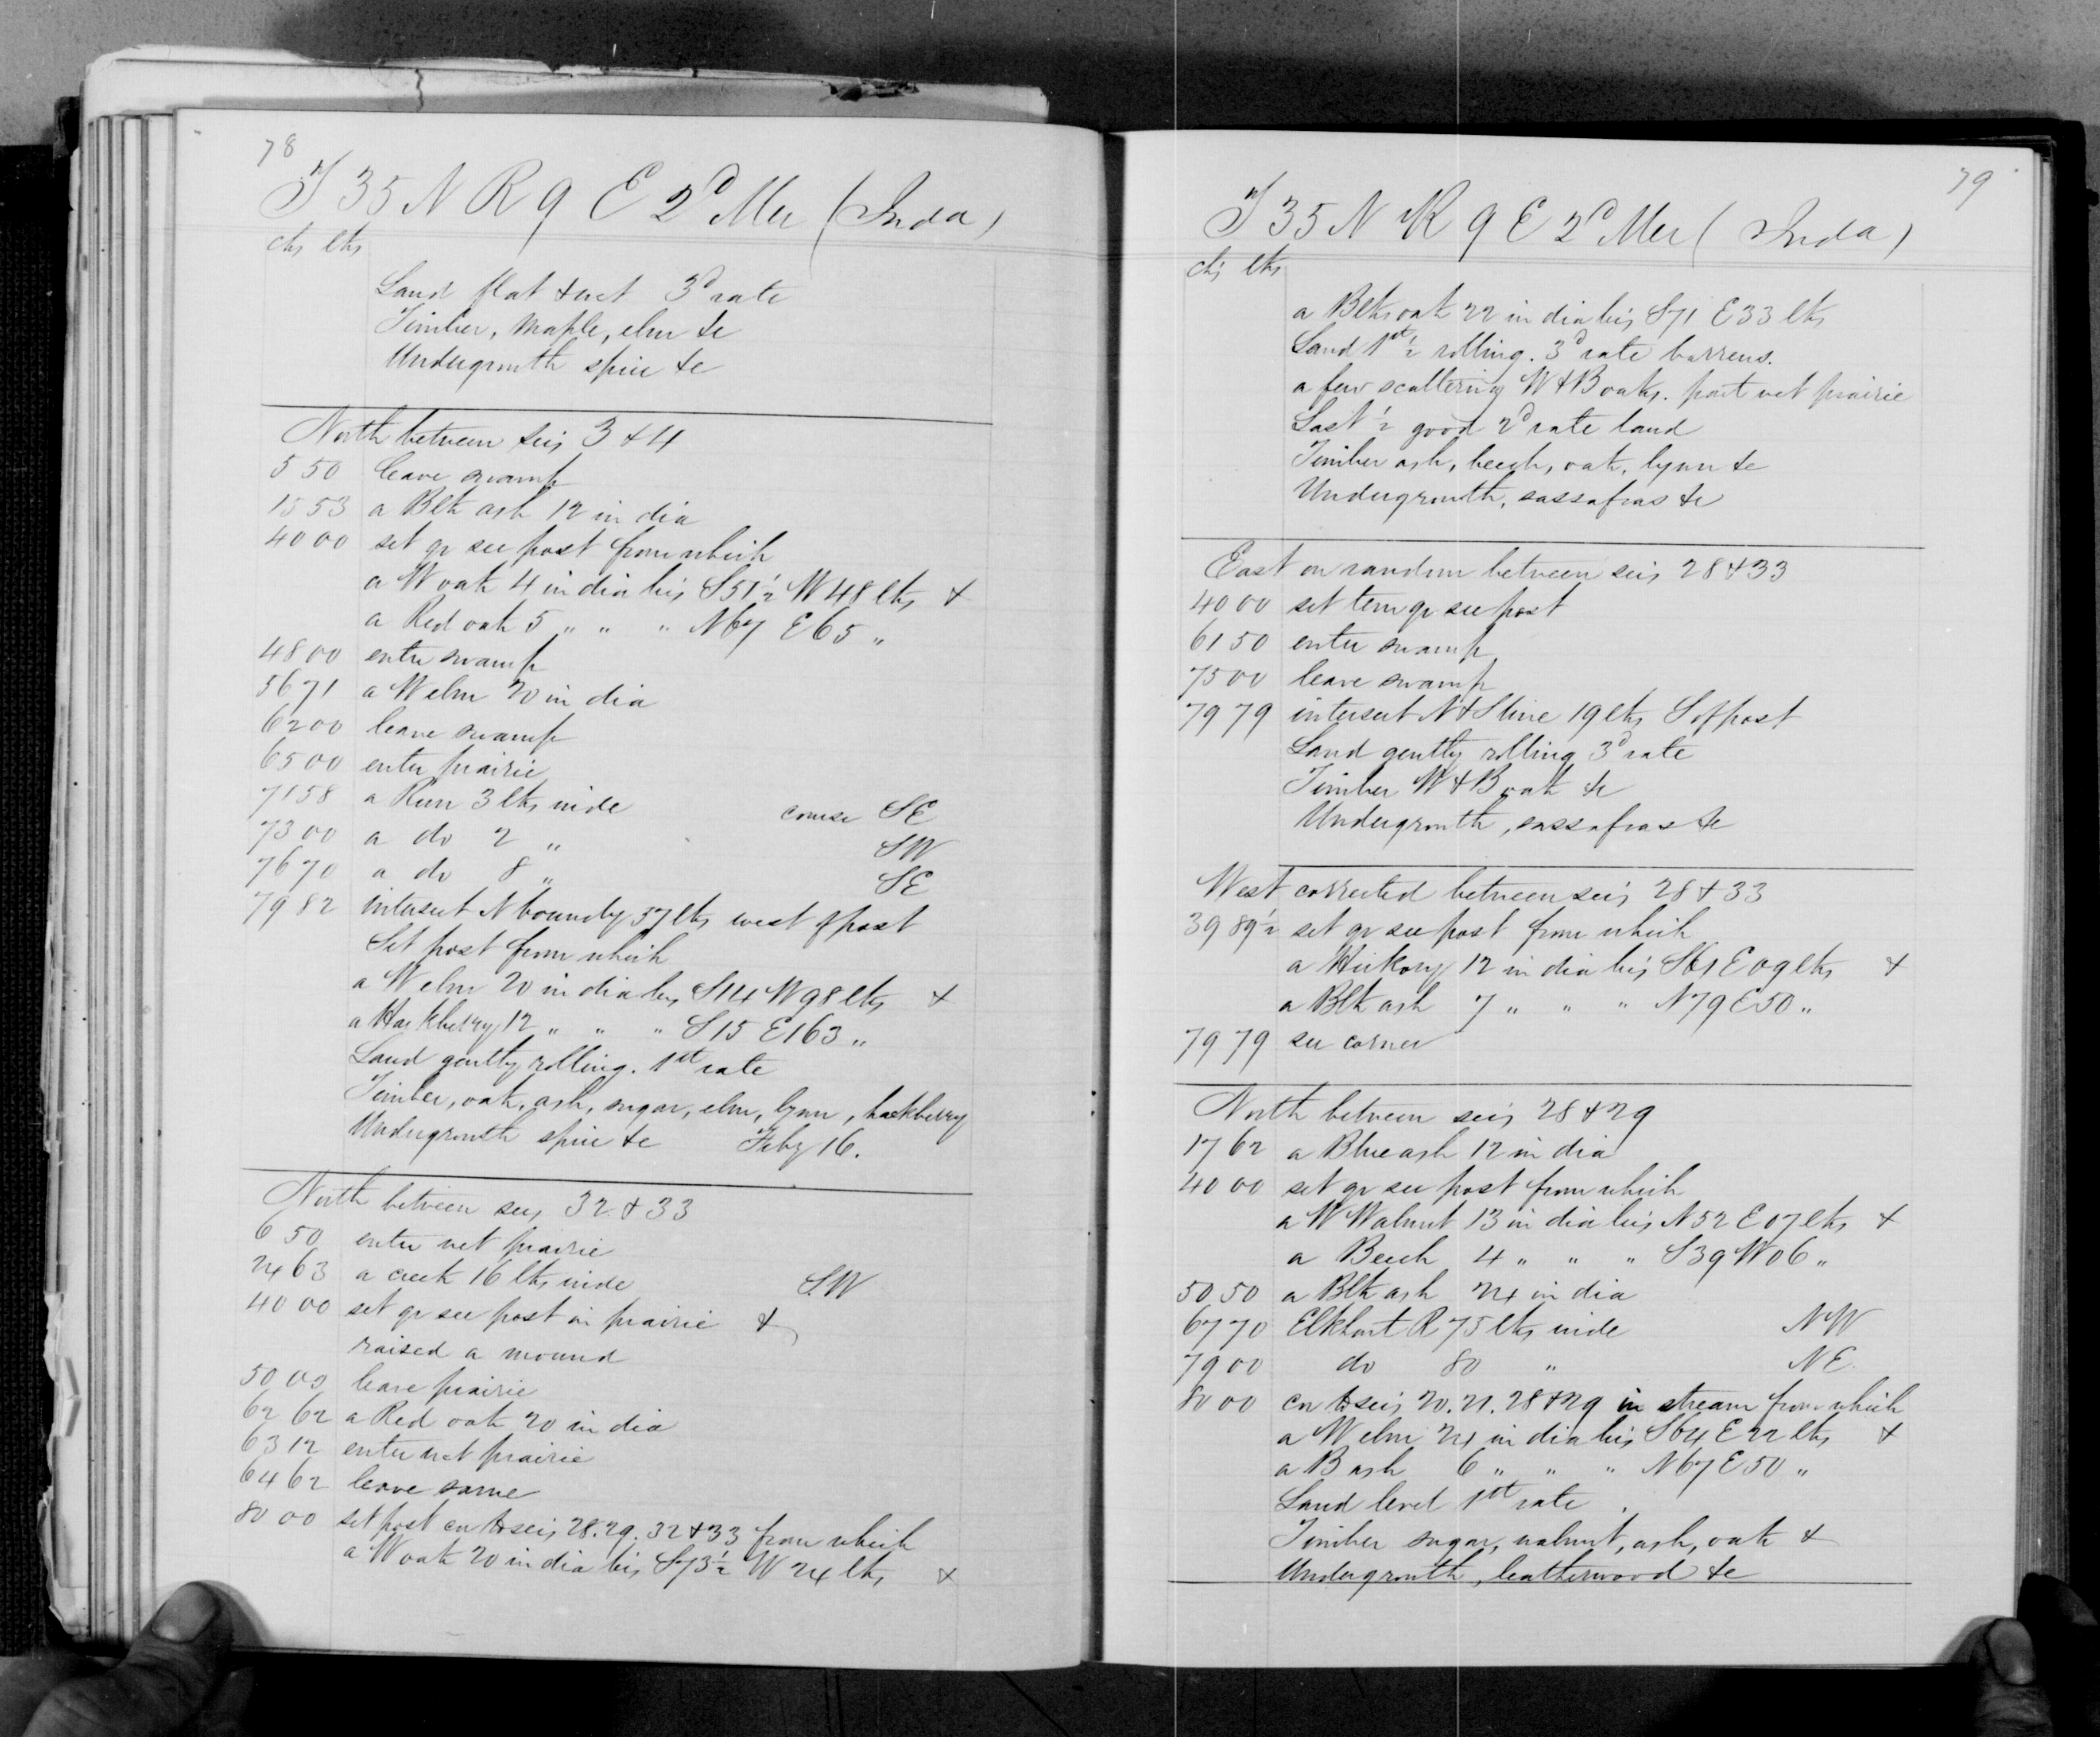 78
T 35 N R 9 E 2d Mer (Inda)
chs lks
Land flat & wet 3d rate
Timber, maple, elm &c
Undergrowth spice &c
North between secs 3 & 4
5 50 leave swamp
15 53 a Blk ash 12 in dia
40 00 set qr sec post from which
a W oak 4 in dia brs S 51 1/2 W 48 lks +
a Red oak 5 " " " N 67 E 65 "
48 00 enter swamp
56 71 a W elm 20 in dia
62 00 leave swamp
65 00 enter prairie
71 58 a Run 3 lks wide course SE
73 00 a do 2 " SW
76 70 a do 8 " SE
79 82 intersect N boundy 37 lks west of post
Set post from which
a W elm 20 in dia brs S 14 W 98 lks +
a Hackberry 12 " " " S 15 E 163 "
Land gently rolling. 1st rate
Timber, oak, ash, sugar, elm, lynn, hackberry
Undergrowth spice &c Feby 16.
North between secs 32 & 33
6 50 enter wet prairie
24 63 a creek 16 lks wide S.W
40 00 set qr sec post in prairie &
raised a mound
50 00 leave prairie
62 62 a Red oak 20 in dia
63 12 enter wet prairie
64 62 leave same
80 00 set post cor to secs 28. 29. 32 & 33 from which
a W oak 20 in dia brs S 73 1/2 W 24 lks +
79
T 35 N R 9 E 2d Mer (Inda)
chs lks
a Blk oak 22 in dia brs S 71 E 33 lks
Land 1st 1/2 rolling. 3d rate barrens.
a few scattering W & B oaks. part wet prairie
Last 1/2 good 2d rate land
Timber ash, beech, oak, lynn &c
Undergrowth, sassafras &c
East on random between secs 28 & 33
40 00 set tem qr sec post
61 50 enter swamp
75 00 leave swamp
79 79 intersect N & S line 19 lks S of post
Land gently rolling 3d rate
Timber W & B oak &c
Undergrowth, sassafras &c
West corrected between secs 28 & 33
39 89 1/2 set qr sec post from which
a Hickory 12 in dia brs S 61 E 09 lks +
a Blk ash 7 " " " N 79 E 50 "
79 79 sec corner
North between secs 28 & 29
17 62 a Blue ash 12 in dia
40 00 set qr sec post from which
a W Walnut 13 in dia brs N 52 E 07 lks +
a Beech 4 " " " S 39 W 06 "
50 50 a Blk ash 24 in dia
67 70 Elkhart R 75 lks wide NW
79 00 do 80 " NE
80 00 cor to secs 20. 21. 28 & 29 in stream from which
a W elm 24 in dia brs S 64 E 22 lks +
a B ash 6 " " " N 67 E 50 "
Land level 1st rate.
Timber sugar, walnut, ash, oak &
Undergrowth, leatherwood &c